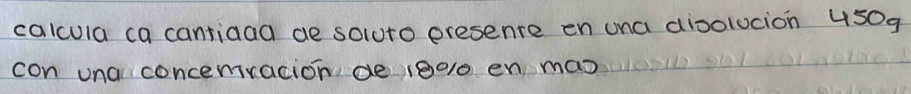 calcula la cantidad de soluto presente en una disolución 450g
con una concentración de 18% en mas